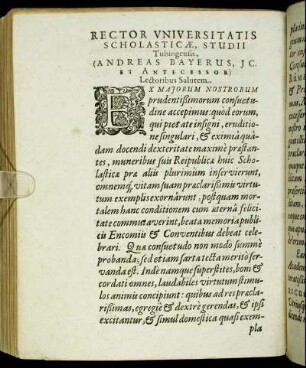 RECTOR VNIVERSITATIS
SCHOLASTICÆ, STUDII
Tubingensis,
(ANDREAS BAYERUS, JC.
ET ANTECESSOR)
Lectoribus Salutem.
EX MAJORUM NOSTRORUM
prudentissimorum consuetu-
dine accepimus: quòd eorum,
qui pietate insigni, eruditio-
ne singulari, & eximiâ quâ-
dam docendi dexteritate maximè præstan-
tes, muneribus suis Reipublicæ huic Scho-
lasticæ præ aliis plurimum inservierunt,
omnemq; vitam suam præclarissimis virtu-
tum exemplis exornârunt, postquam mor-
talem hanc conditionem cum æternâ felici-
tate commutaverint, beata memoria publi-
cis Encomiis & Conventibus debeat cele-
brari. Quæ consuetudo non modò summè
probanda; sed etiam sarta tecta meritò ser-
vanda est. Inde namque superstites, boni &
cordati omnes, laudabiles virtutum stimu-
los animis concipiunt: quibus ad res præcla-
rissimas, egregiè & dextrè gerendas, & ipsi
excitantur, & simul domestica quasi exem-
pla